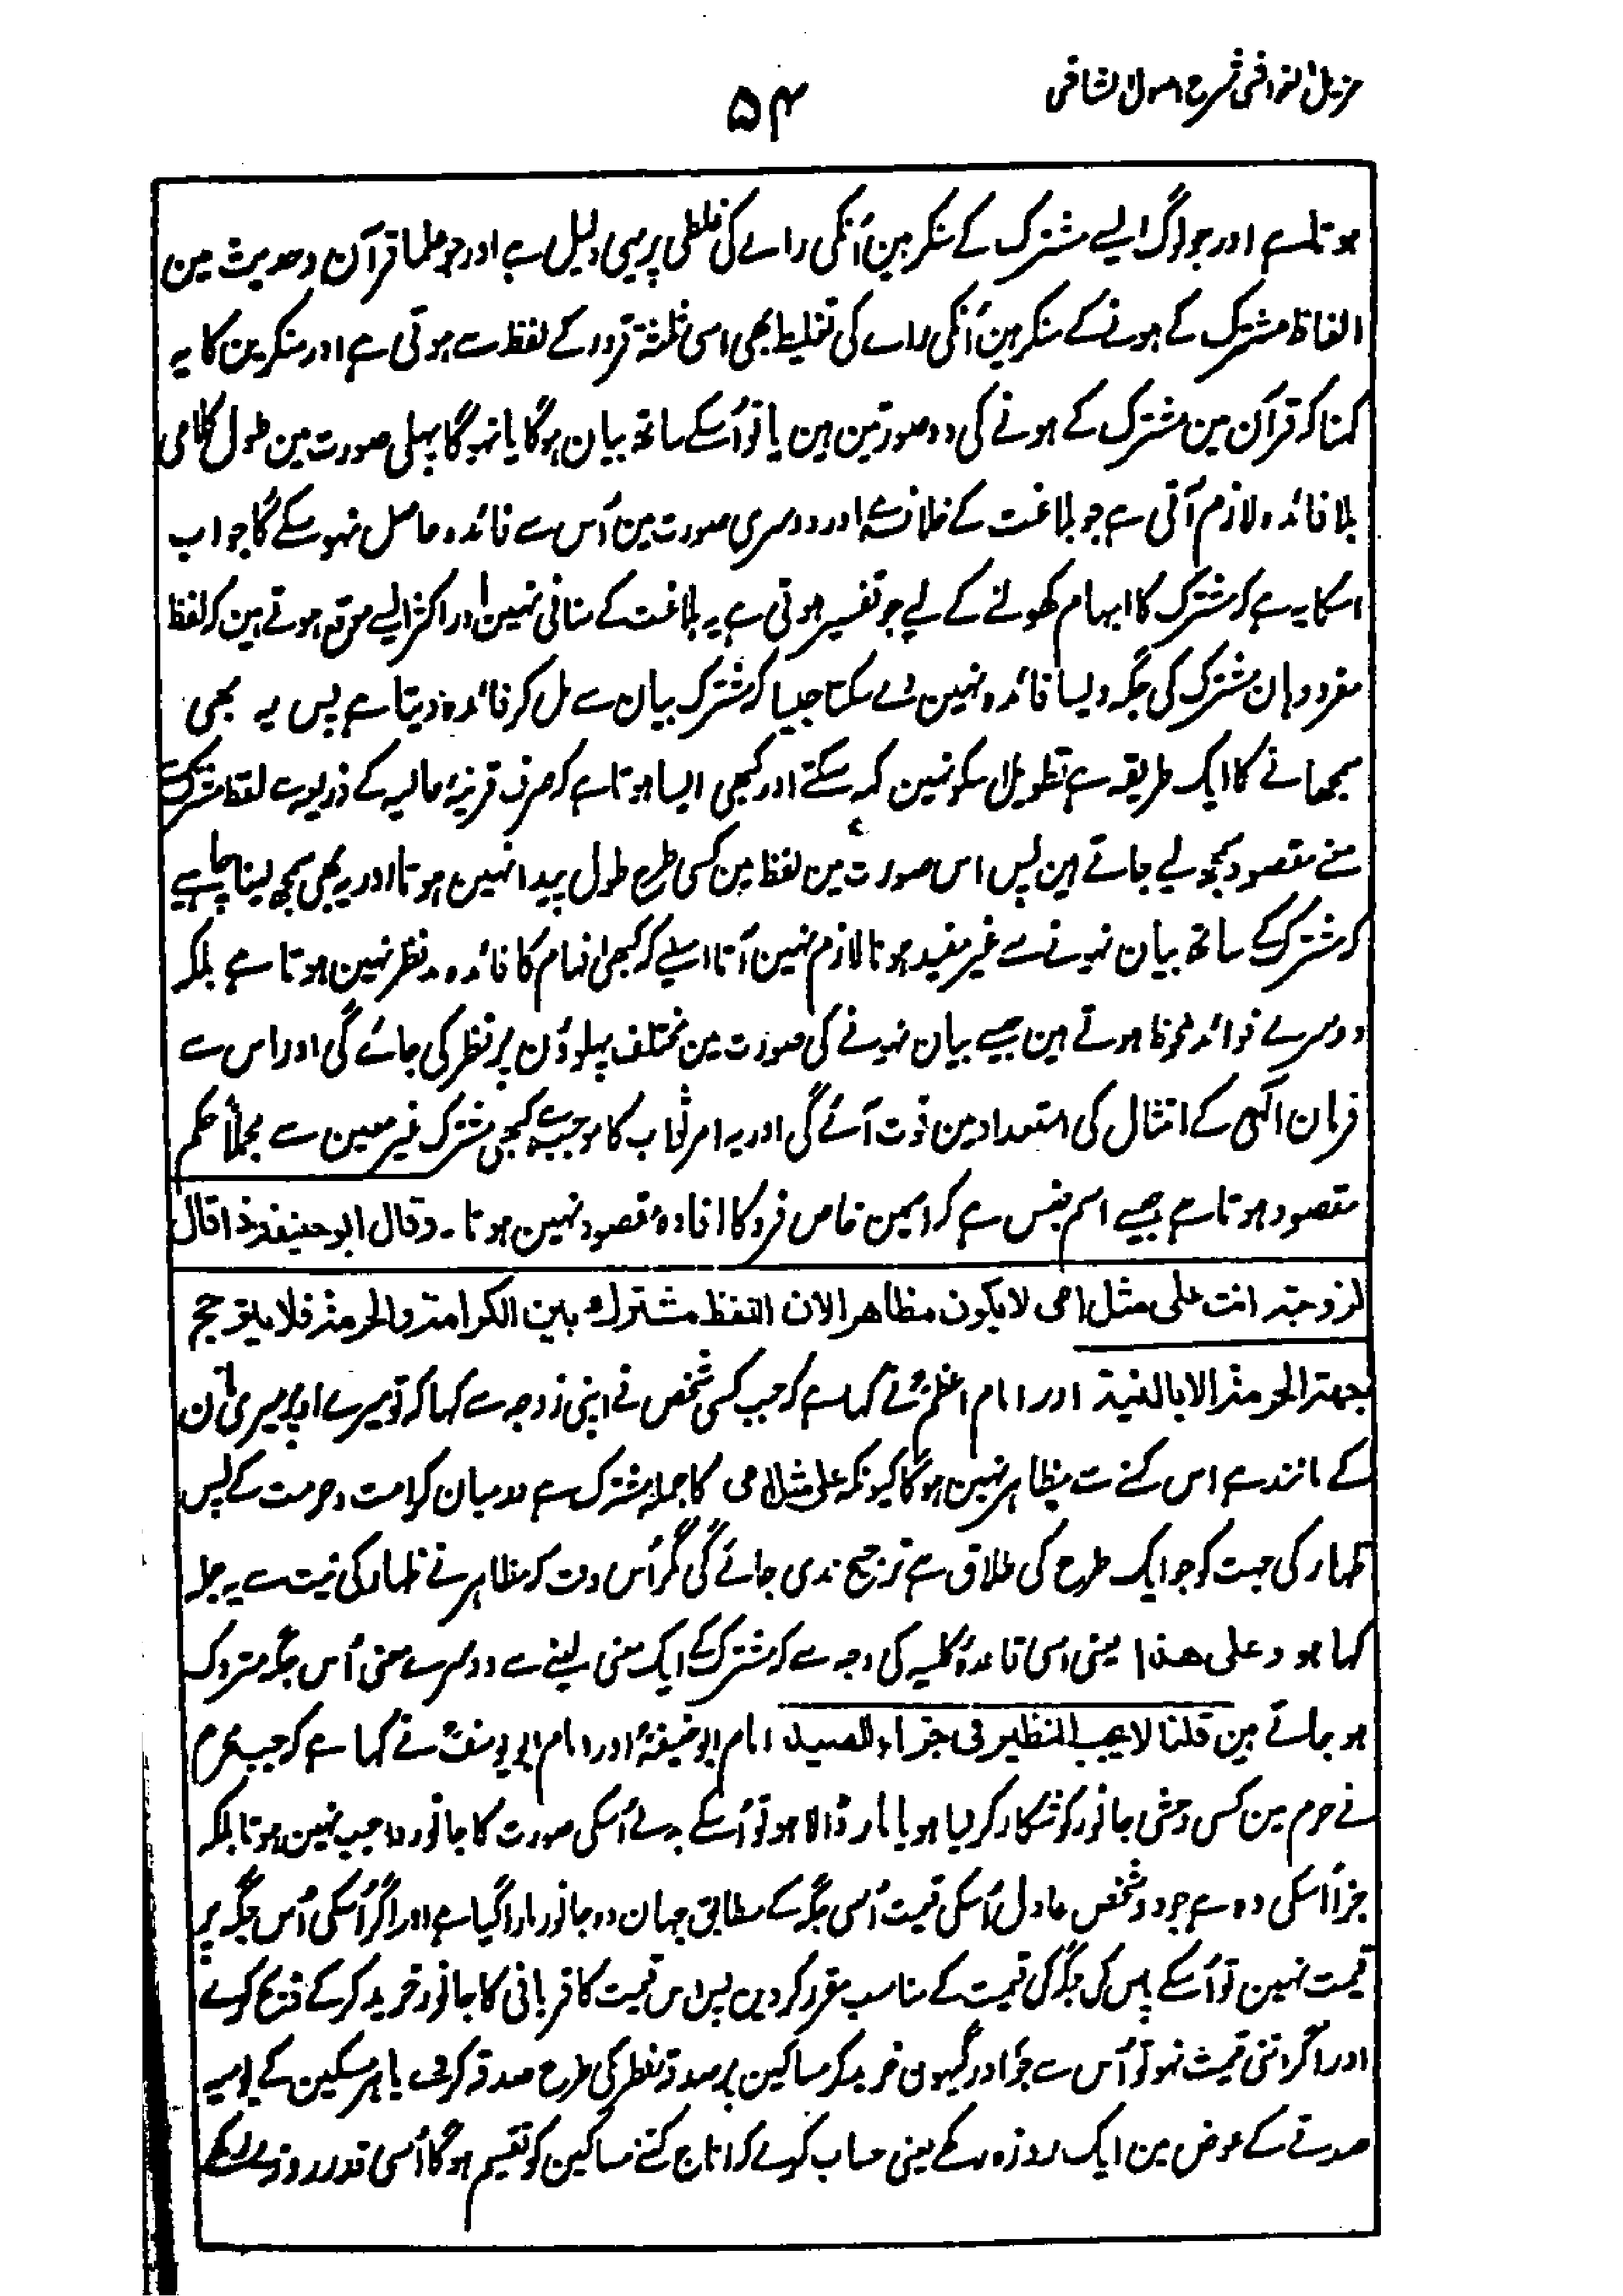 مزیل الغواشی شرح اصول الشاشی
۵۴
ہوتا ہے اور جو لوگ ایسے مشترک کے منکر ہین اُنکی راے کی غلطی پر یہی دلیل ہے اور جو علما قرآن و حدیث مین
الفاظ مشترک کے ہونے کے منکر ہین اُنکی راے کی تغلیط بھی اسی ثلثۃ قروء کے لفظ سے ہوتی ہے اور منکرین کا یہ
کہنا کہ قرآن مین مشترک کے ہونے کی دو صورتین ہین یا تو اُسکے ساتھ بیان ہوگا یا نہوگا پہلی صورت مین طول کلامی
بلا فائدہ لازم آتی ہے جو بلاغت کے خلاف ہے اور دوسری صورت مین اُس سے فائدہ حاصل نہو سکے گا جواب
اسکا یہ ہے کہ مشترک کا ابہام کھولنے کے لیے جو تفسیر ہوتی ہے یہ بلاغت کے منافی نہین اور اکثر ایسے موقع ہوتے ہین کہ لفظ
مفرد وہان مشترک کی جگہ ویسا فائدہ نہین دے سکتا جیسا کہ مشترک بیان سے مل کر فائدہ دیتا ہے پس یہ بھی
سمجھانے کا ایک طریقہ ہے تطویل اسکو نہین کہہ سکتے اور کبھی ایسا ہوتا ہے کہ صرف قرینۂ حالیہ کے ذریعہ سے لفظ مشترک سے
معنے مقصود سمجھ لیے جاتے ہین پس اس صورت مین لفظ مین کسی طرح طول پیدا نہین ہوتا اور یہ بھی سمجھ لینا چاہیے
کہ مشترک کے ساتھ بیان نہونے سے غیر مفید ہونا لازم نہین آتا اسلیے کہ کبھی افہام کا فائدہ مدنظر نہین ہوتا ہے بلکہ
دوسرے فوائد ملحوظ ہوتے ہین جیسے بیان نہونے کی صورت مین مختلف پہلوؤن پر نظر کی جائے گی اور اس سے
فرمان الٰہی کے امتثال کی استعداد مین قوت آئے گی اور یہ امر ثواب کا موجب ہے کبھی مشترک غیر معین سے مجملاً حکم
مقصود ہوتا ہے جیسے اسم جنس ہے کہ اسمین خاص فرد کا افادہ مقصود نہین ہوتا۔ وقال ابو حنیفۃ اذا قال
لزوجتہ انت علی مثل امی لا یکون مظاہرا لان اللفظ مشترک بین الکرامۃ والحرمۃ فلا یترجح
جھۃ الحرمۃ الا بالنیۃ اور امام اعظمؒ نے کہا ہے کہ جب کسی شخص نے اپنی زوجہ سے کہا کہ تو میرے اوپر میری مان
کے مانند ہے اس کہنے سے مظاہر نہین ہوگا کیونکہ علی مثل امی کا جملہ مشترک ہے درمیان کرامت و حرمت کے پس
ظہار کی جہت کو جو ایک طرح کی طلاق ہے ترجیح ندی جائے گی مگر اُس وقت کہ مظاہر نے ظہار کی نیت سے یہ جملہ
کہا ہو وعلی ھذا یعنی اسی قاعدۂ کلیہ کی وجہ سے کہ مشترک کے ایک معنی لینے سے دوسرے معنی اُس جگہ متروک
ہو جاتے ہین قلنا لا یجب النظیر فی جزاء الصید امام ابو حنیفہؒ اور امام ابو یوسفؒ نے کہا ہے کہ جب محرم
نے حرم مین کسی وحشی جانور کو شکار کر لیا ہو یا مار ڈالا ہو تو اُسکے بدلے اُسکی صورت کا جانور واجب نہین ہوتا بلکہ
جزا اُسکی وہ ہے جو دو شخص عادل اُسکی قیمت اُسی جگہ کے مطابق جہان وہ جانور مارا گیا ہے اور اگر اُسکی اُس جگہ پر
قیمت نہین تو اُسکے پاس کی جگہ کی قیمت کے مناسب مقرر کر دین پس اس قیمت کا قربانی کا جانور خرید کر کے ذبح کرے
اور اگر اتنی قیمت نہو تو اُس سے جَو اور گیہون خرید کر مساکین پر صدقۂ فطر کی طرح صدقہ کر دے یا ہر مسکین کے یومیہ
صدقے کے عوض مین ایک روزہ رکھے یعنی حساب کرے کہ اناج کتنے مساکین کو تقسیم ہوگا اُسی قدر روزے رکھے